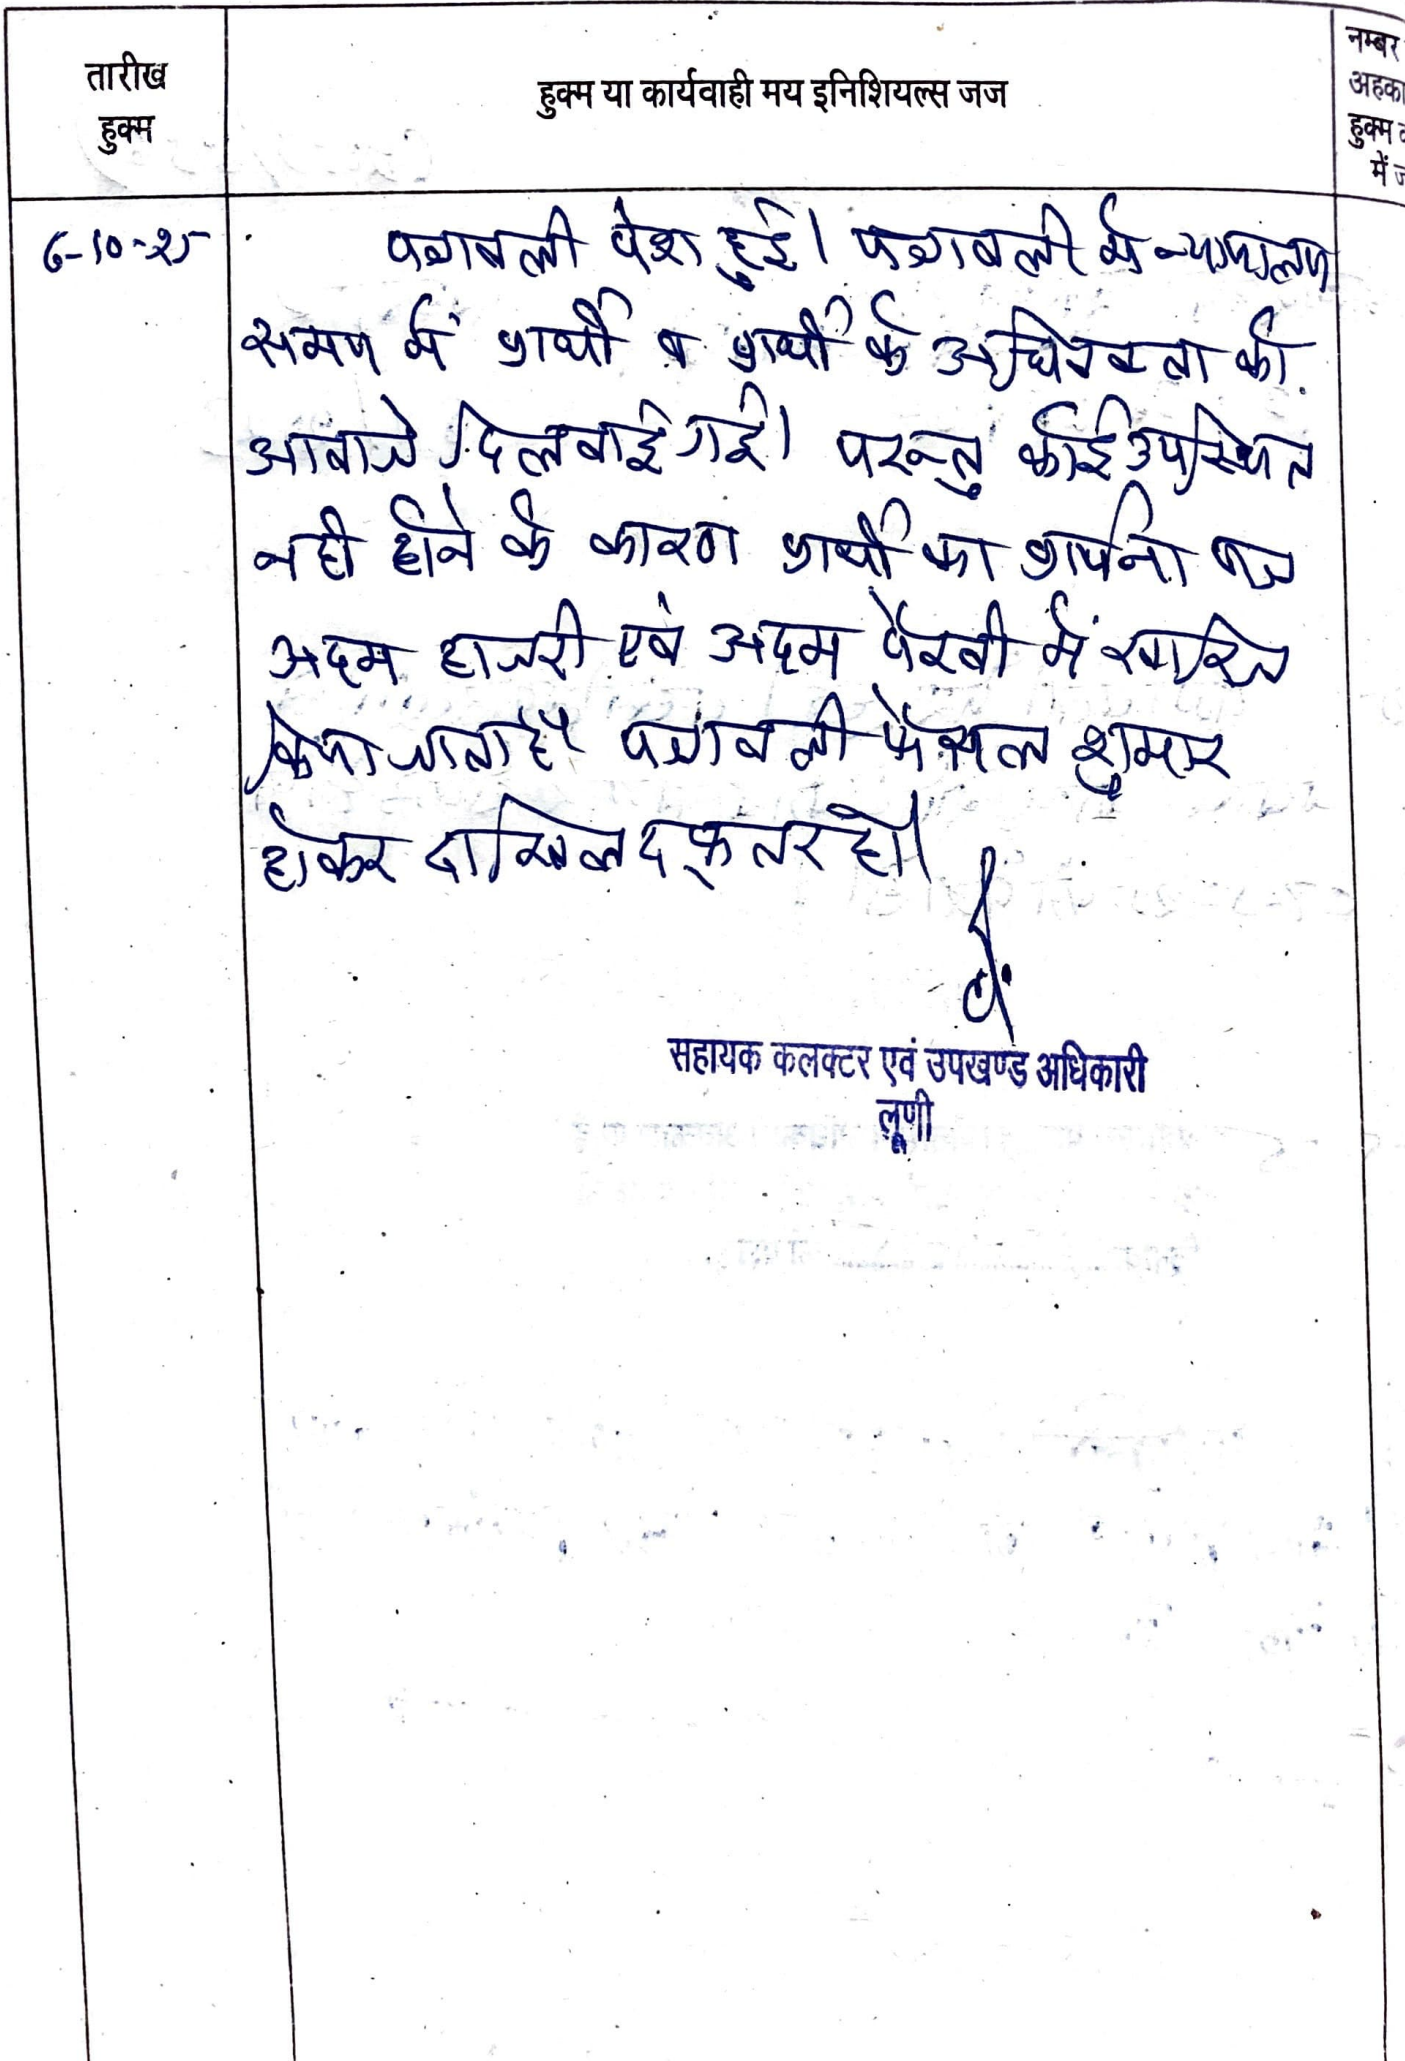 तारीख
हुक्म
हुक्म या कार्यवाही मय इनिशियल्स जज
नम्बर
अहका
हुक्म
में ज
6-10-25
पत्रावली पेश हुई। पत्रावली में न्यायालय
समय में प्रार्थी व प्रार्थी के अधिवक्ता को
आवाजे दिलवाई गई। परन्तु कोई उपस्थित
नही होने के कारण प्रार्थी का प्रार्थना पत्र
अदम हाजरी एवं अदम पैरवी में खारिज
किया जाता है। पत्रावली फैसल शुमार
होकर दाखिल दफ्तर हो।
सहायक कलक्टर एवं उपखण्ड अधिकारी
लूणी